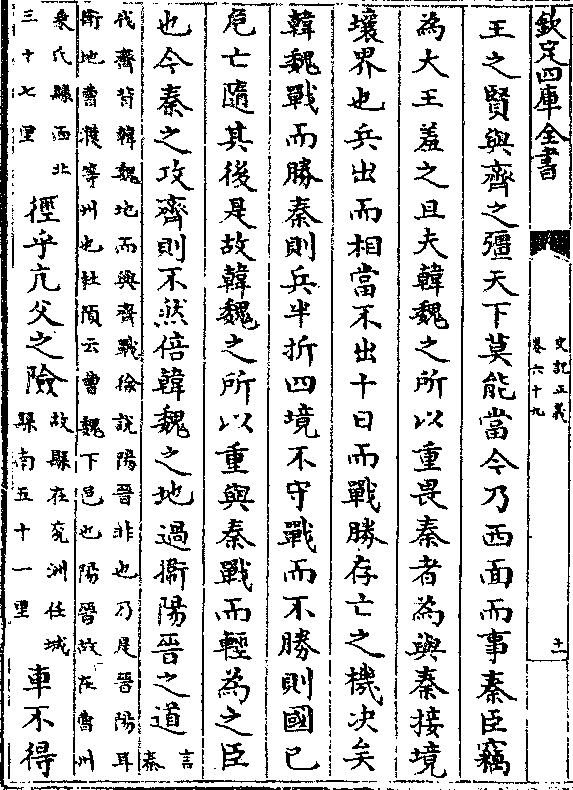 欽定四庫全書
史記正義
卷六十九
十一
王之賢與齊之彊天下莫能當今乃西面而事秦臣竊
為大王羞之且夫韓魏之所以重畏秦者為與秦接境
壤界也兵出而相當不出十日而戰勝存亡之機决矣
韓魏戰而勝秦則兵半折四境不守戰而不勝則國已
危亡隨其後是故韓魏之所以重與秦戰而輕為之臣
也今秦之攻齊則不然倍韓魏之地過衛陽晉之道言秦
伐齊背韓魏地而與齊戰徐說陽晉非也乃是晉陽耳
衛地曹濮等州也杜預云曹魏下邑也陽晉故在曹州
乘氏縣西北三十七里徑乎亢父之險故縣在兖洲任城縣南五十一里車不得